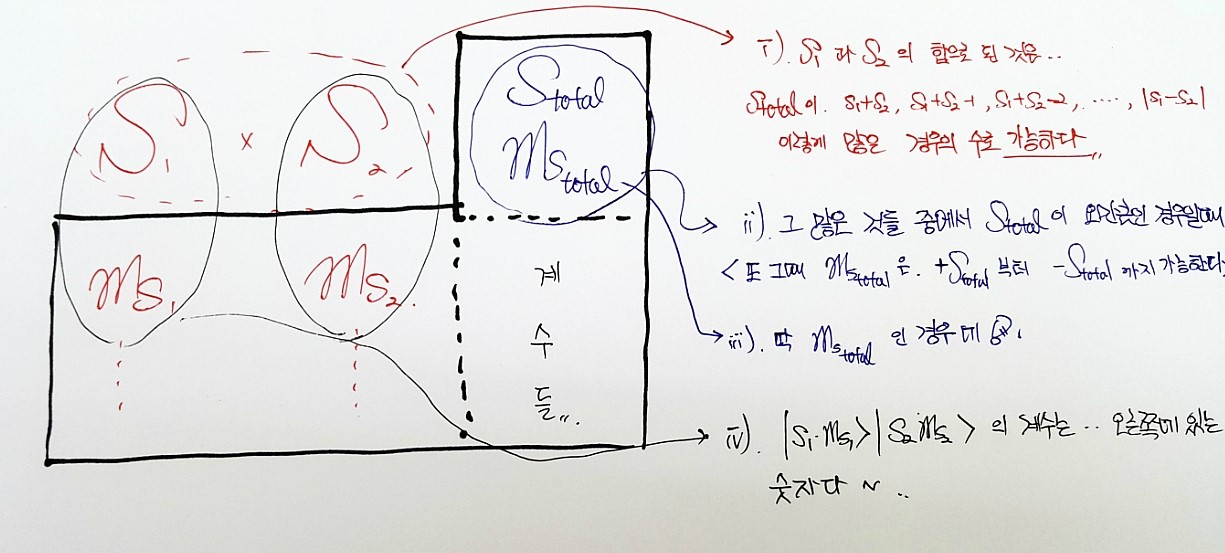 S₁ × S₂
S total
m s total
m s₁ m s₂.
계
수
들..
i). S₁ 과 S₂ 의 합으로 된 것은..
S total 이. s₁+s₂, s₁+s₂-1, s₁+s₂-2, ‥‥, |s₁-s₂|
이렇게 많은 경우의 수로 가능하다..
ii). 그 많은 것들 중에서 S total 이 요만큼인 경우말이다
< 또 그때 m s total 은. +S total 부터 -S total 까지 가능한다.
iii). 딱 m s total 인 경우데
iv). |s₁ m s₁>|s₂ m s₂> 의 계수는.. 오른쪽에 있는
숫자다 ~ ..